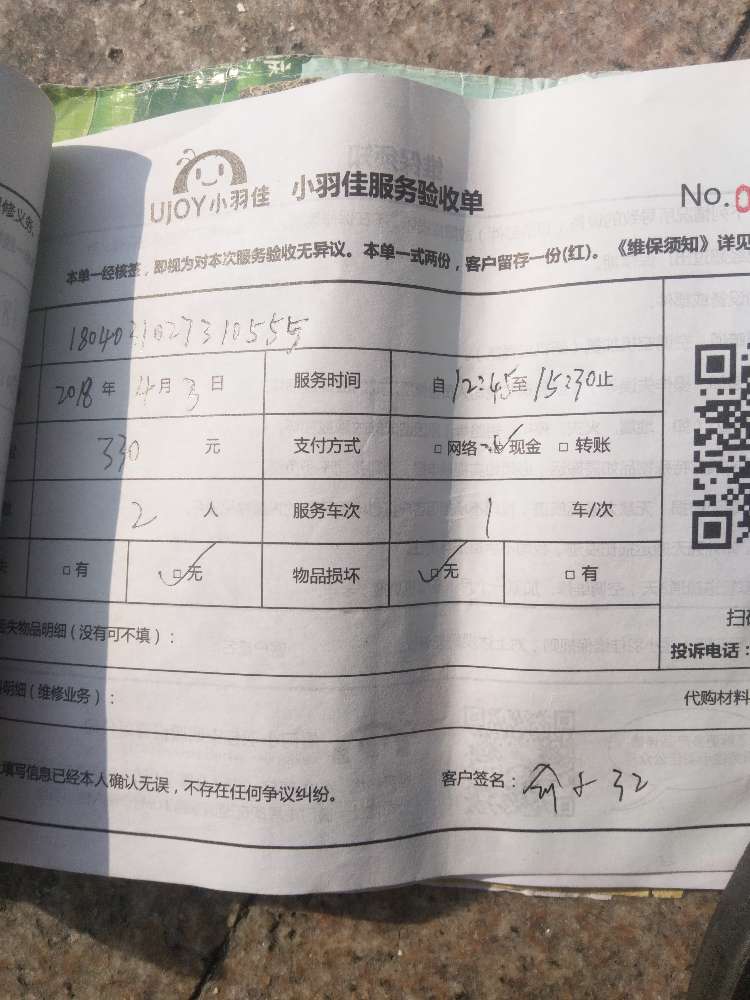 UJOY小羽佳 小羽佳服务验收单 No.0
本单一经核签，即视为对本次服务验收无异议。本单一式两份，客户留存一份(红)。《维保须知》详见
180403102731055
2018年4月3日 服务时间 自12:45至15:30止
330元 支付方式 □网络 □现金 □转账
2人 服务车次 1车/次
□有 □无 物品损坏 □无 □有
失物品明细(没有可不填)： 扫
投诉电话：
明细(维修业务)： 代购材料
填写信息已经本人确认无误，不存在任何争议纠纷。 客户签名：